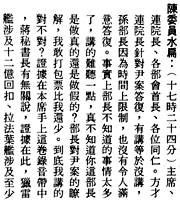 陳委員水扁：（十七時二十四分）主席、
連院長、各部會首長、各位同仁。方才
連院長針對尹案答復，有講等於沒講，
孫部長因為時間上限制，也沒有令人滿
意的答復。事實上部長不知道的事情太多
了，講的難聽一點，真不知道你這部長
是做真的還是做假的？部長對尹案的瞭
解，我敢打包票比我還少。到底我講的
對不對？證據在本席手上這卷錄音帶中
，蔣秘書長有無關說，證據在此，獵雷
艦涉及十二億回扣、拉法葉艦涉及至少